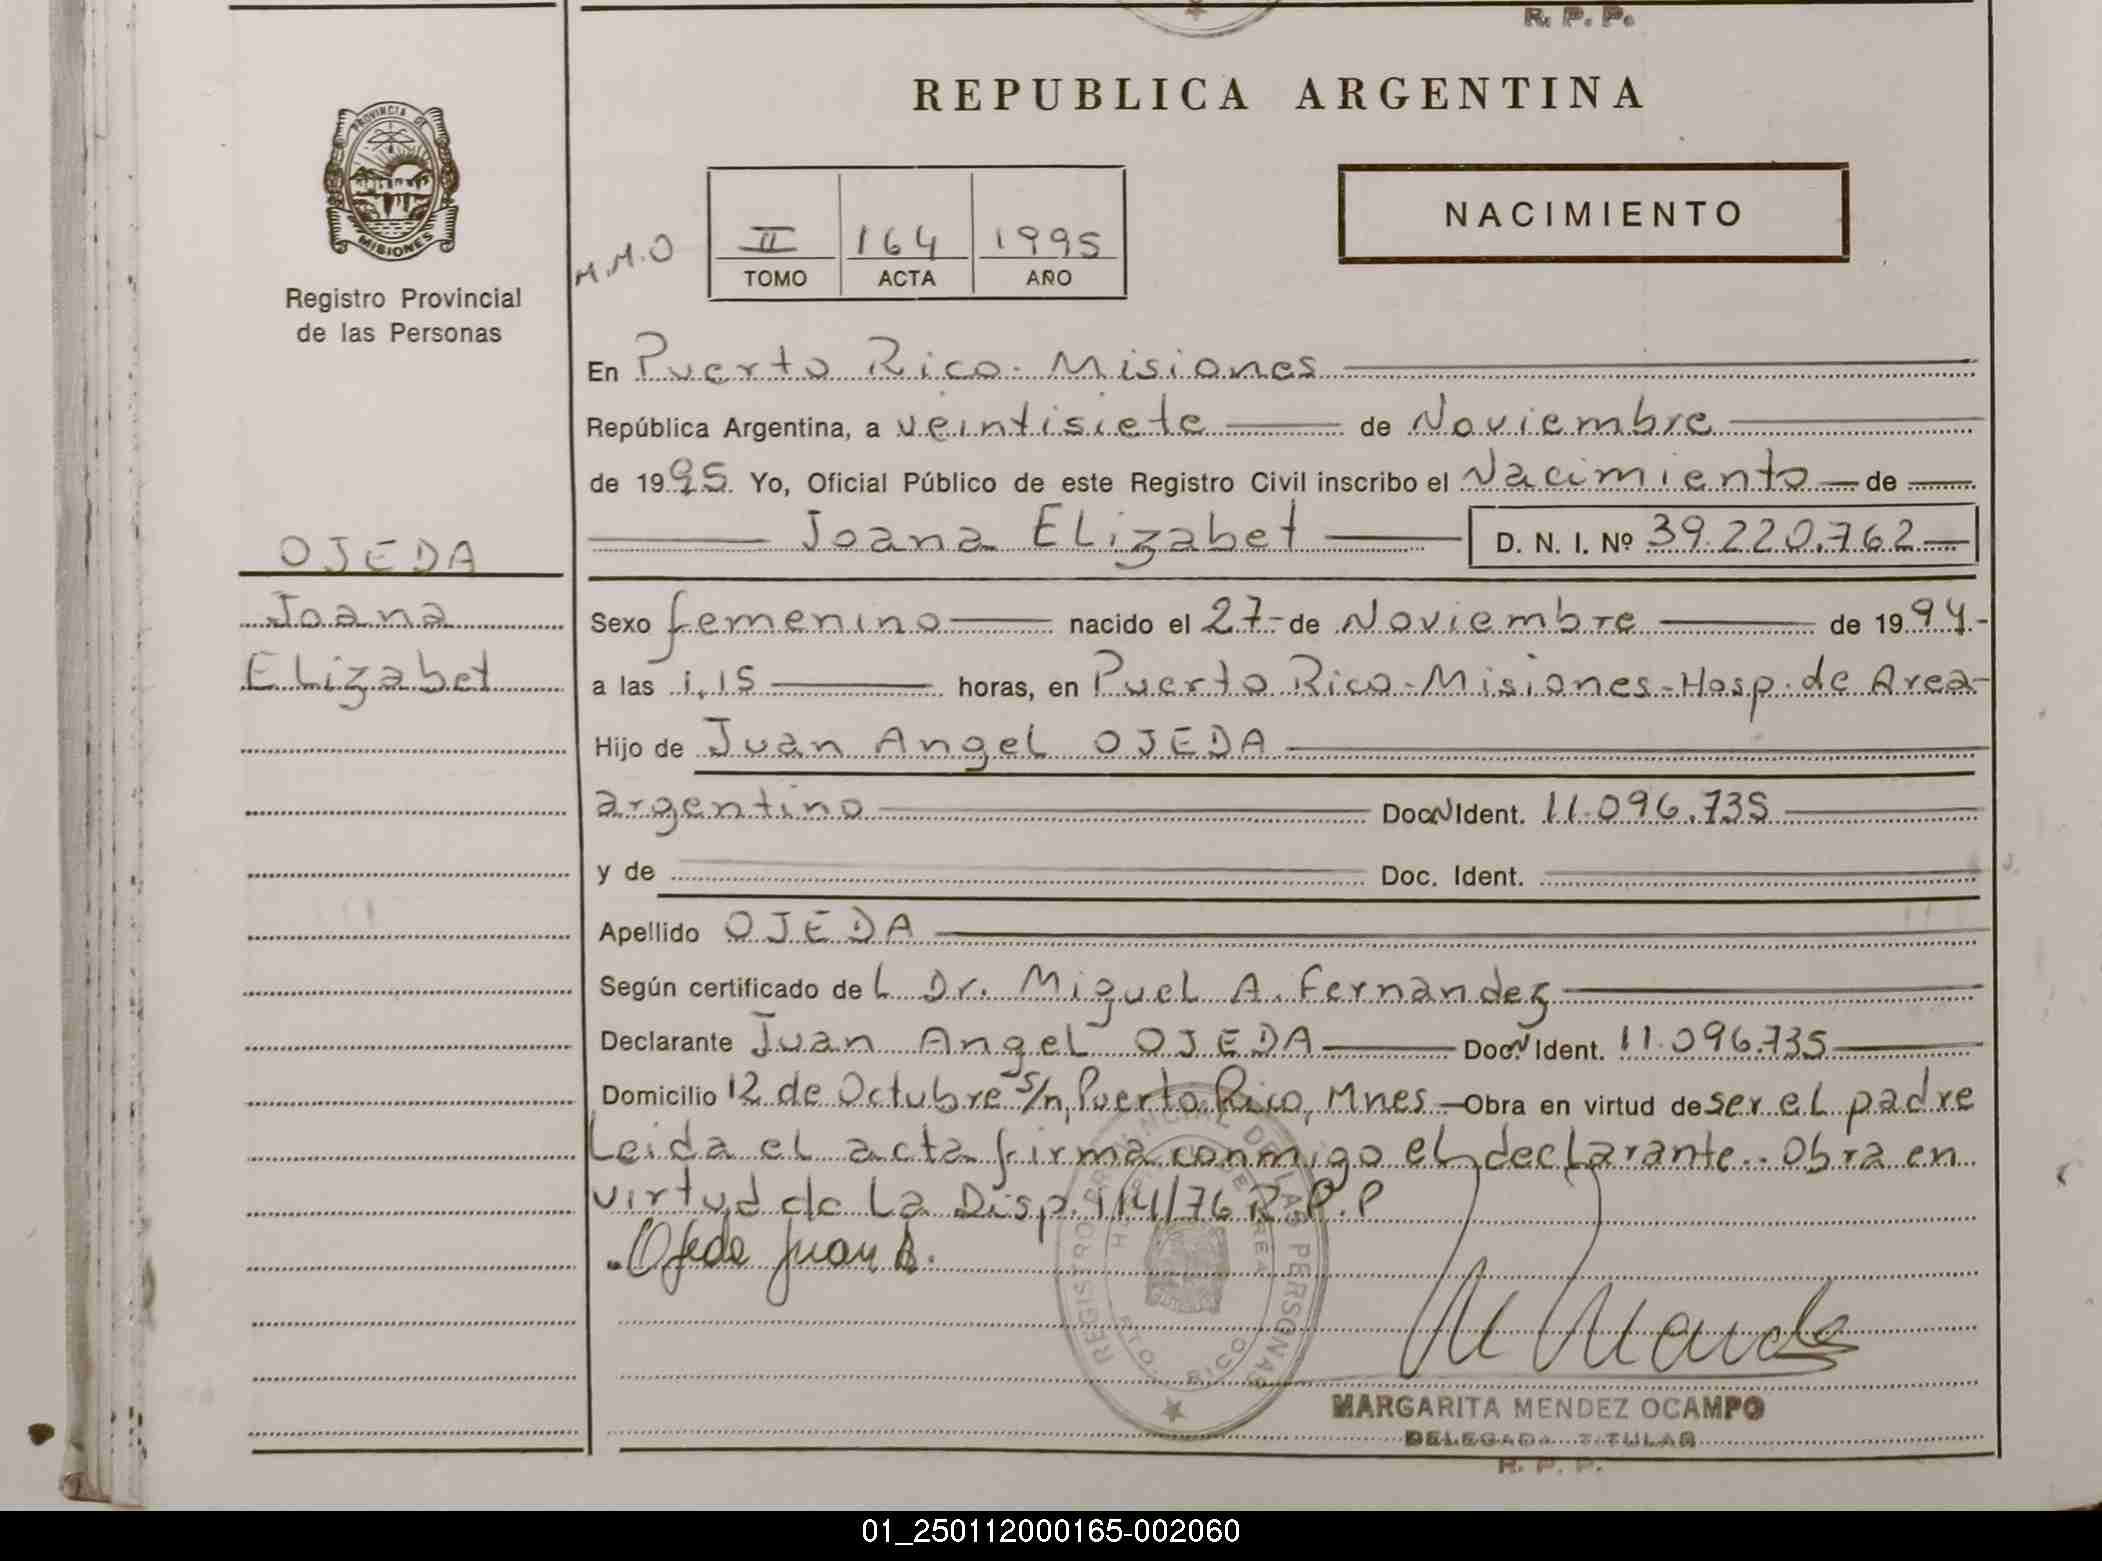 R. P. P.
REPUBLICA ARGENTINA
PROVINCIA DE
MISIONES
Registro Provincial
de las Personas
M.M.O
II 164 1995
TOMO ACTA AÑO
NACIMIENTO
En Puerto Rico - Misiones
República Argentina, a veintisiete de Noviembre
de 1995. Yo, Oficial Público de este Registro Civil inscribo el Nacimiento de
Joana ELizabet D. N. I. Nº 39.220.762
OJEDA
Joana
ELizabet
Sexo femenino nacido el 27 de Noviembre de 1994.-
a las 1,15 horas, en Puerto Rico - Misiones - Hosp. de Area-
Hijo de Juan Angel OJEDA
argentino Doc. N Ident. 11.096.735
y de Doc. Ident.
Apellido OJEDA
Según certificado de L Dr. Miguel A. Fernandez
Declarante Juan Angel OJEDA Doc. N Ident. 11.096.735
Domicilio 12 de Octubre s/n, Puerto Rico, Mnes. Obra en virtud de ser el padre
Leida el acta firma conmigo el declarante.. Obra en
virtud de La Disp. 114/76 R.P.P
Ojeda Juan A.
REGISTRO PROVINCIAL DE LAS PERSONAS
PTO. RICO
MARGARITA MENDEZ OCAMPO
DELEGADA TITULAR
R. P. P.
01_250112000165-002060